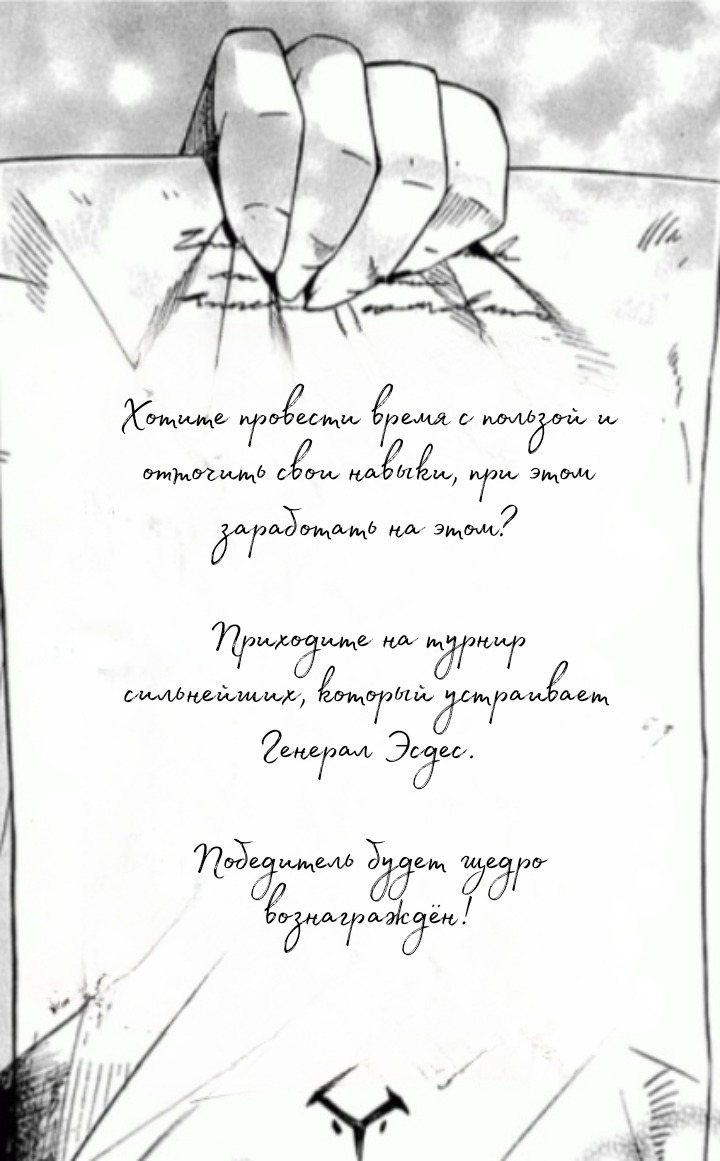 Хотите провести время с пользой и
отточить свои навыки, при этом
заработать на этом?
Приходите на турнир
сильнейших, который устраивает
Генерал Эсдес.
Победитель будет щедро
вознаграждён!